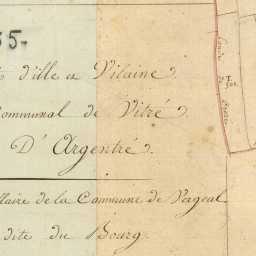 35.
d'ille et Vilaine.
ommunal de Vitré.
D'Argentré.
llaire de la Commune de Vergeal
dite du Bourg.